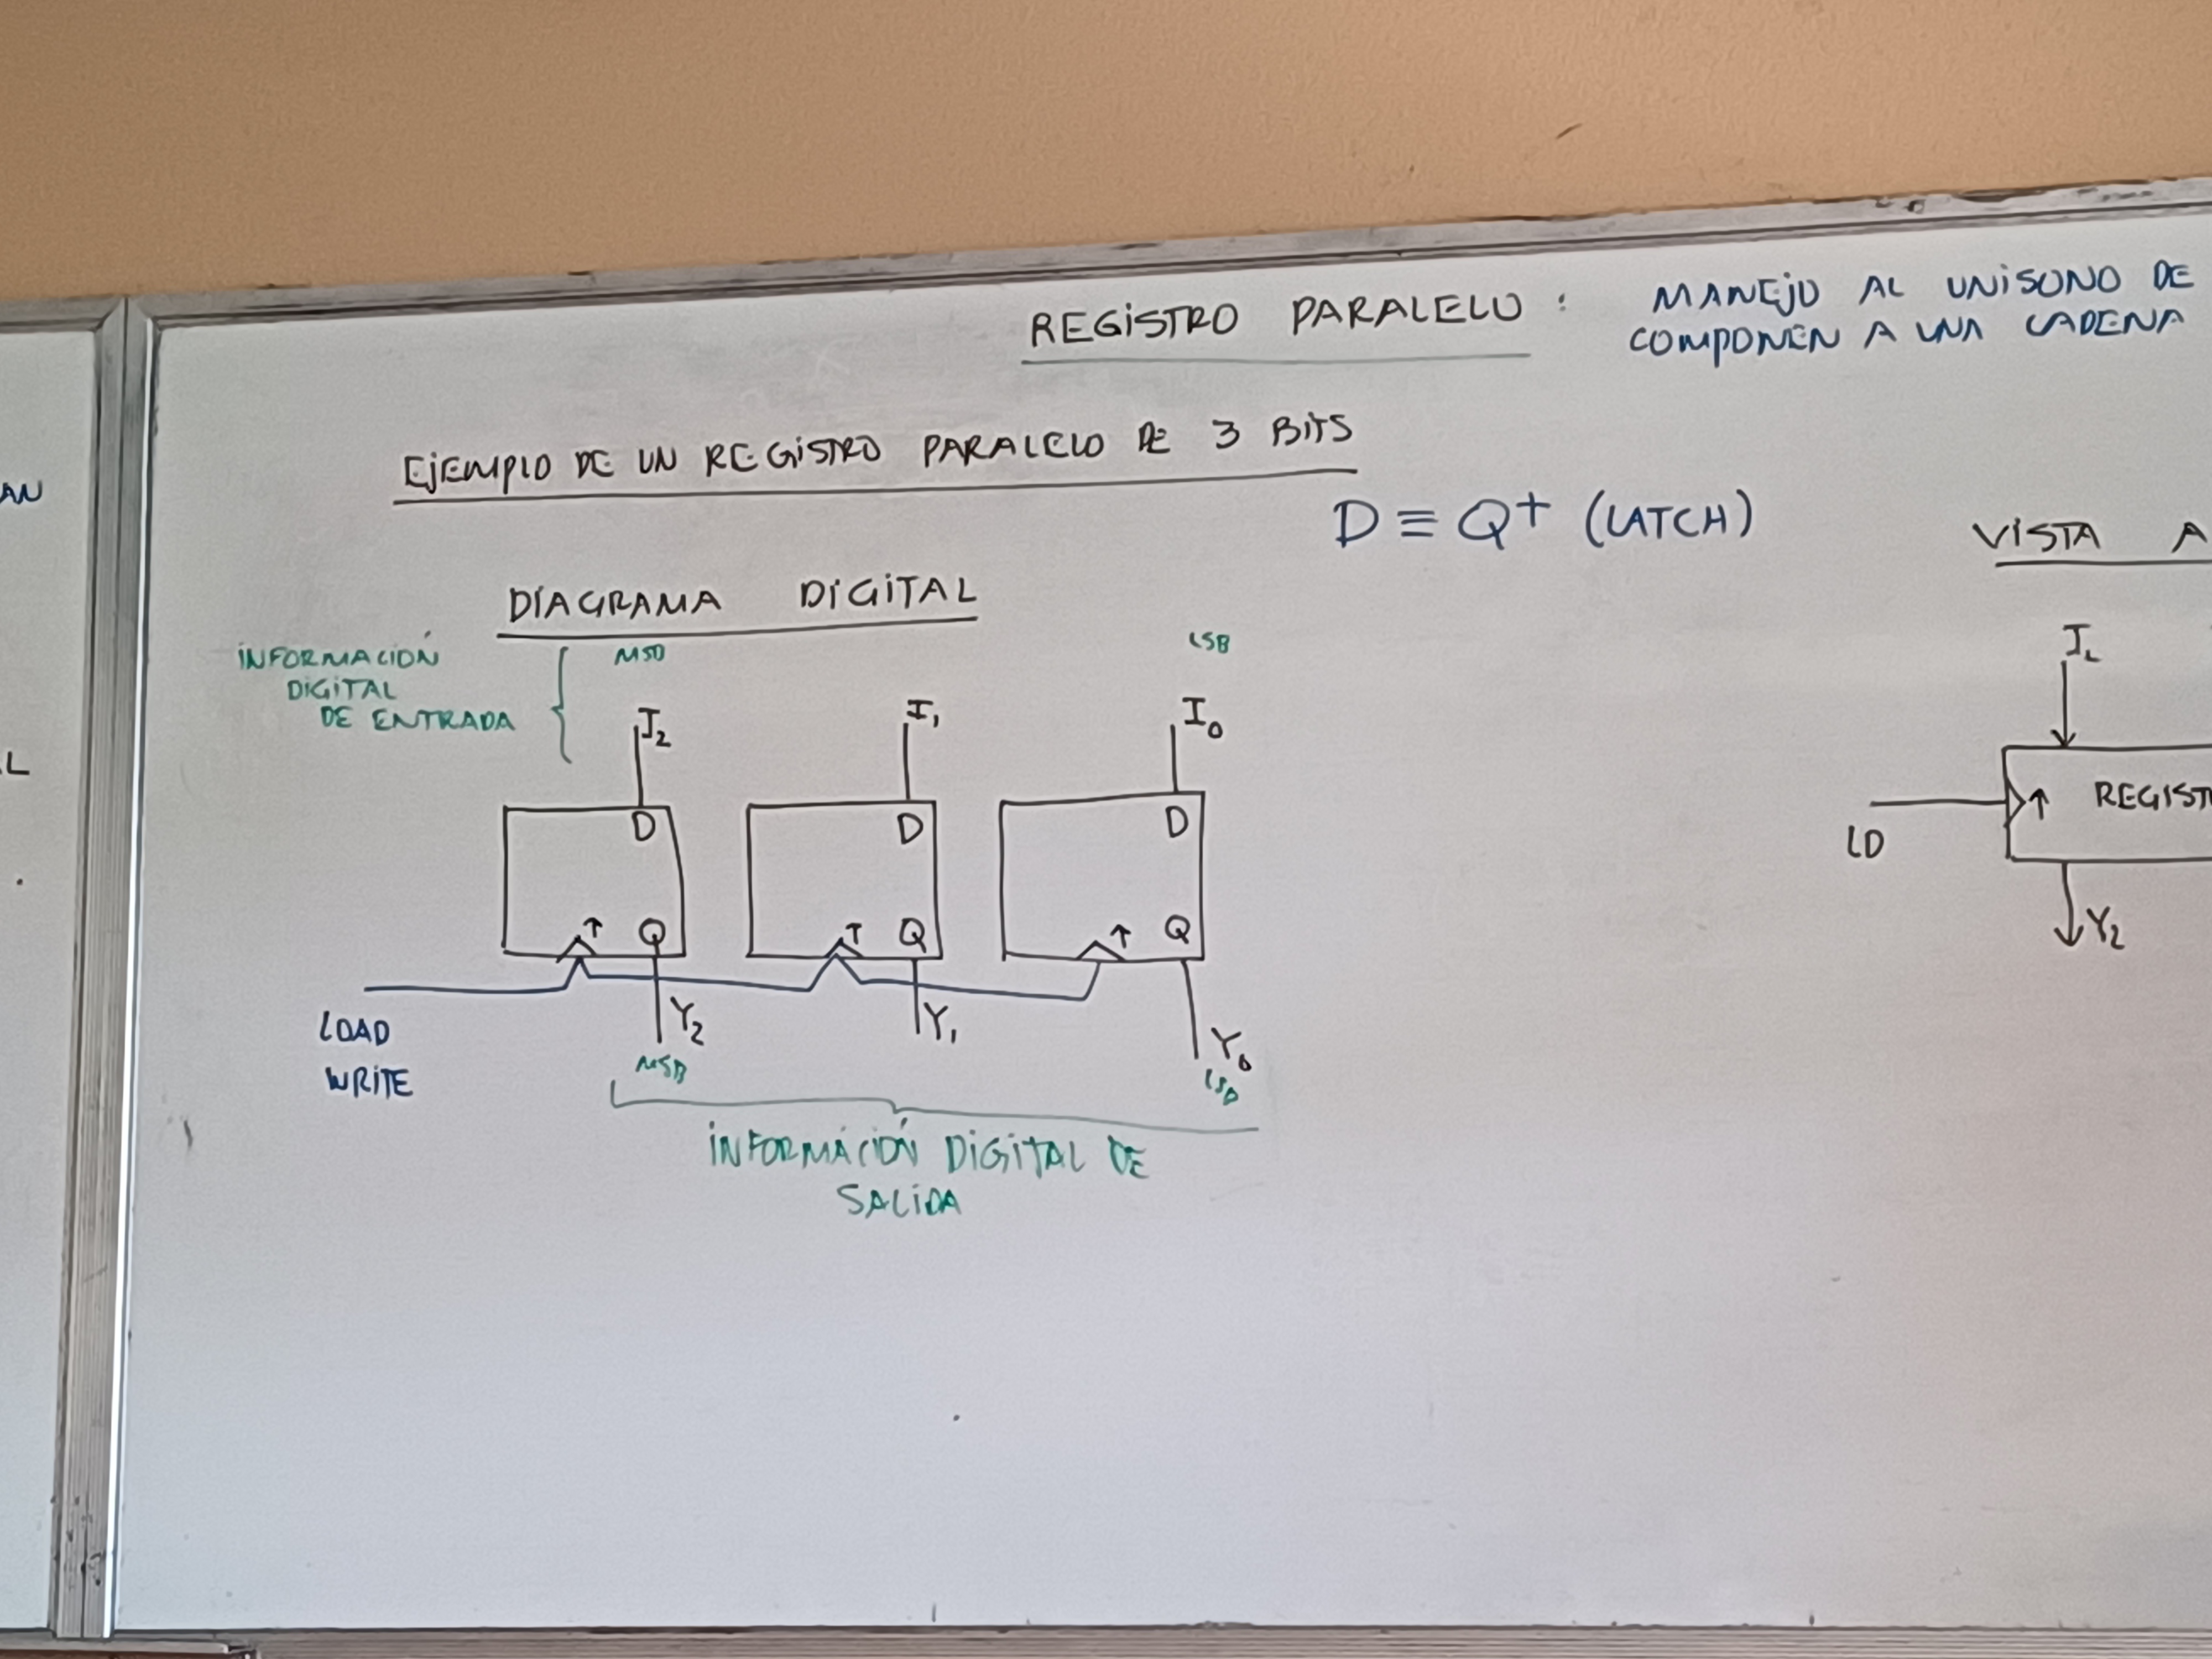 REGISTRO PARALELO :
MANEJO AL UNISONO DE
COMPONEN A UNA CADENA
EJEMPLO DE UN REGISTRO PARALELO DE 3 BITS
AN
D ≡ Q+ (LATCH)
VISTA A
DIAGRAMA DIGITAL
INFORMACIÓN
DIGITAL
DE ENTRADA
MSB
LSB
I2 I1 I0
L
D D D
↑ Q ↑ Q ↑ Q
LOAD
WRITE
Y2 Y1 Y0
MSB LSB
INFORMACIÓN DIGITAL DE
SALIDA
I2
↑ REGIST
LD
Y2